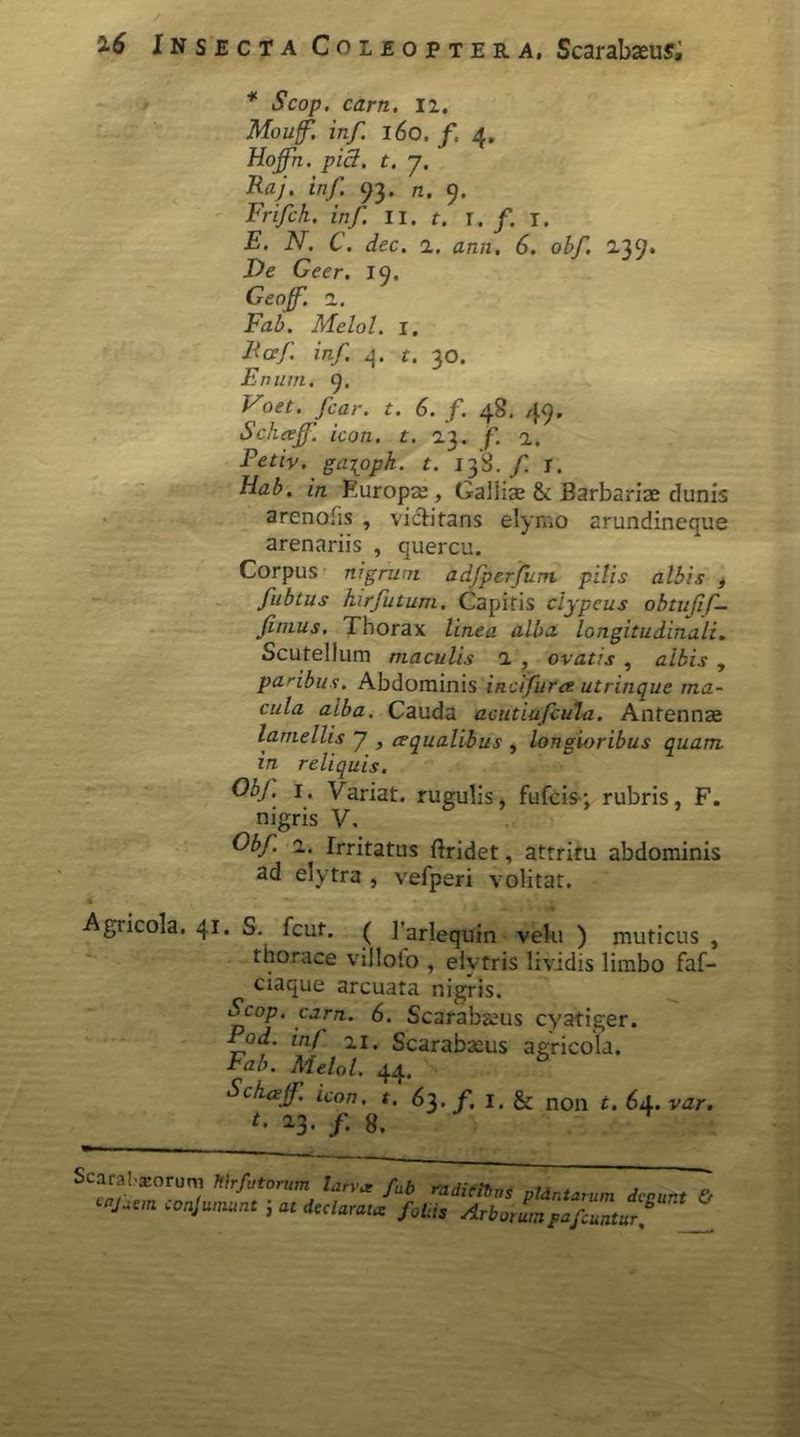 26 INSECTA COLEOPTERA. Scarabæus.
* Scop. carn. 12.
Mouff. inſ. 160. f. 4.
Hoffn. pict. t. 7.
Raj. inſ. 93. n. 9.
Friſch. inſ. 11. t. 1. f. 1.
E. N. C. dec. 2. ann. 6. obſ. 239.
De Geer. 19.
Geoff. 2.
Fab. Melol. 1.
Rœſ. inſ. 4. t. 30.
Enum. 9.
Voet. ſcar. t. 6. f. 48. 49.
Schæff. icon. t. 23. f. 2.
Petiv. gazoph. t. 138. f. 1.
Hab. in Europæ, Galliæ & Barbariæ dunis
arenoſis , victitans elymo arundineque
arenariis , quercu.
Corpus nigrum adſperſum pilis albis ,
ſubtus hirſutum. Capitis clypeus obtuſiſ-
ſimus. Thorax linea alba longitudinali.
Scutellum maculis 2 , ovatis , albis ,
paribus. Abdominis inciſuræ utrinque ma-
cula alba. Cauda acutiuſcula. Antennæ
lamellis 7 , æqualibus , longioribus quam
in reliquis.
Obſ. 1. Variat. rugulis, fuſcis; rubris, F.
nigris V.
Obſ. 2. Irritatus ſtridet, attritu abdominis
ad elytra , veſperi volitat.
Agricola. 41. S. ſcut. ( l'arlequin velu ) muticus ,
thorace villoſo , elytris lividis limbo faſ-
ciaque arcuata nigris.
Scop. carn. 6. Scarabæus cyatiger.
Pod. inſ 21. Scarabæus agricola.
Fab. Melol. 44.
Schæff. icon. t. 63. f. 1. & non t. 64. var.
t. 23. f. 8.
Scarabæorum hirſutorum larvæ ſub radicibus plantarum degunt &
eaſdem conſumunt ; at declaratæ foliis Arborum paſcuntur.